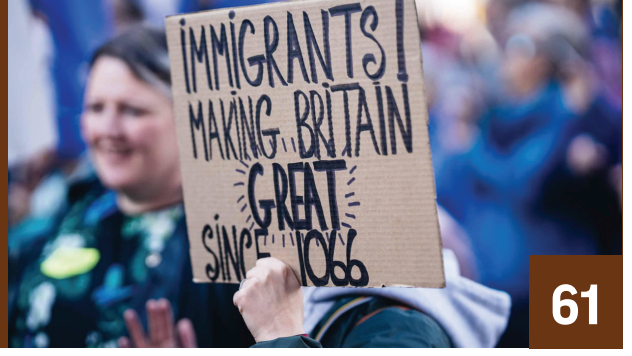 IMMIGRANTS!
MAKING BRITAIN
GREAT
SINCE 1066
61